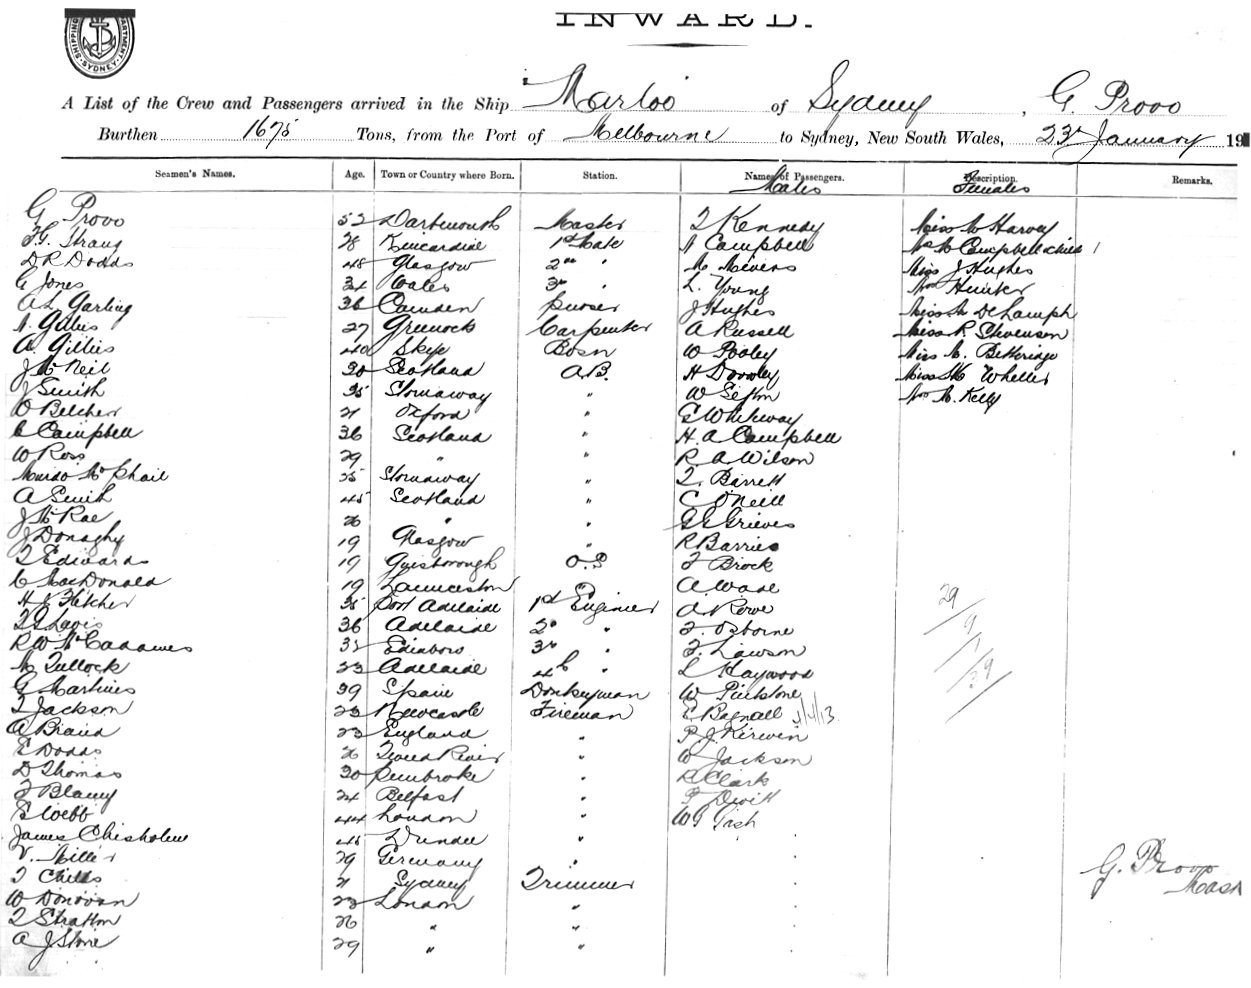 SHIPPING DEPARTMENT · SYDNEY
INWARD.
A List of the Crew and Passengers arrived in the Ship Marloo of Sydney, G. Provo
Burthen 1675 Tons, from the Port of Melbourne to Sydney, New South Wales, 23rd January 19
Seamen's Names. Age. Town or Country where Born. Station. Names of Passengers. Description. Remarks.
Males Females
G Provo 52 Dartmouth Master T Kennedy Miss M Harvey
28 Kincardine 1st Mate A Campbell Campbell & child 1
D R Dodds 48 Glasgow 2nd " Miss J Hughes
G Jones 34 Wales 3rd " L. Young Mrs Hunter
A L Garling 36 Camden Purser J Hughes Miss M
27 Greenock Carpenter A Russell Miss R. Stevenson
A. Gillies 40 Skye Bosn W Pooley Miss M. Betheridge
J McNeil 30 Scotland A.B. H Miss M Wheller
J Smith 35 Stornaway " W Sefton Mrs M. Kelly
W Belcher 21 Oxford " G Whiteway
C Campbell 36 Scotland " H. A Campbell
W Ross 29 " " R A Wilson
Murdo McPhail 25 Stornaway " T. Barrett
A Smith 45 Scotland " C O'Neill
J McRae 26 " " G E Grieves
J Donaghy 19 Glasgow " R Barries
T Edwards 19 Guisborough O.S T Brock
C MacDonald 19 Launceston A. Wade
H J Fletcher 35 Port Adelaide 1st Engineer A. Rowe
36 Adelaide 2nd " F. Osborne
R W McCadames Edinboro 3rd " F. Lawson
M Tullock 23 Adelaide 4th " L Haywood
G Martines 29 Spain Donkeyman W
T Jackson 23 Newcastle Fireman E Bagnall 4/4/13
A Braid 23 England " P. J. Kirwin
E Dodds 26 Tweed River " W Jackson
D Thomas 30 Pembroke " R Clark
T Blamy 24 Belfast "
E Webb 44 London " W G Tash
James Chisholme 45 Dundee "
V. Miller 29 Germany " G. Provo
T Childs 21 Sydney Trimmer Mast
W Donovan 23 London "
T Stratton 26 " "
A J Stone 29 " "
29/9/1/39